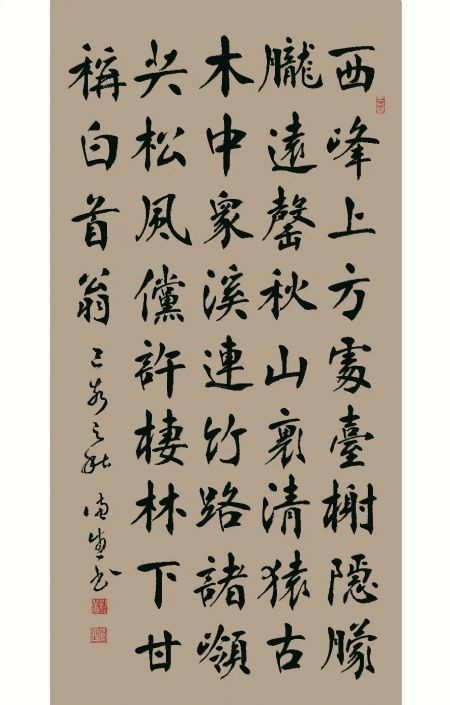 西峰上方處臺榭隱朦
朧遠罄秋山裏清猿古
木中衆溪連竹路諸嶺
共松風儻許棲林下甘
稱白首翁 之秋 書